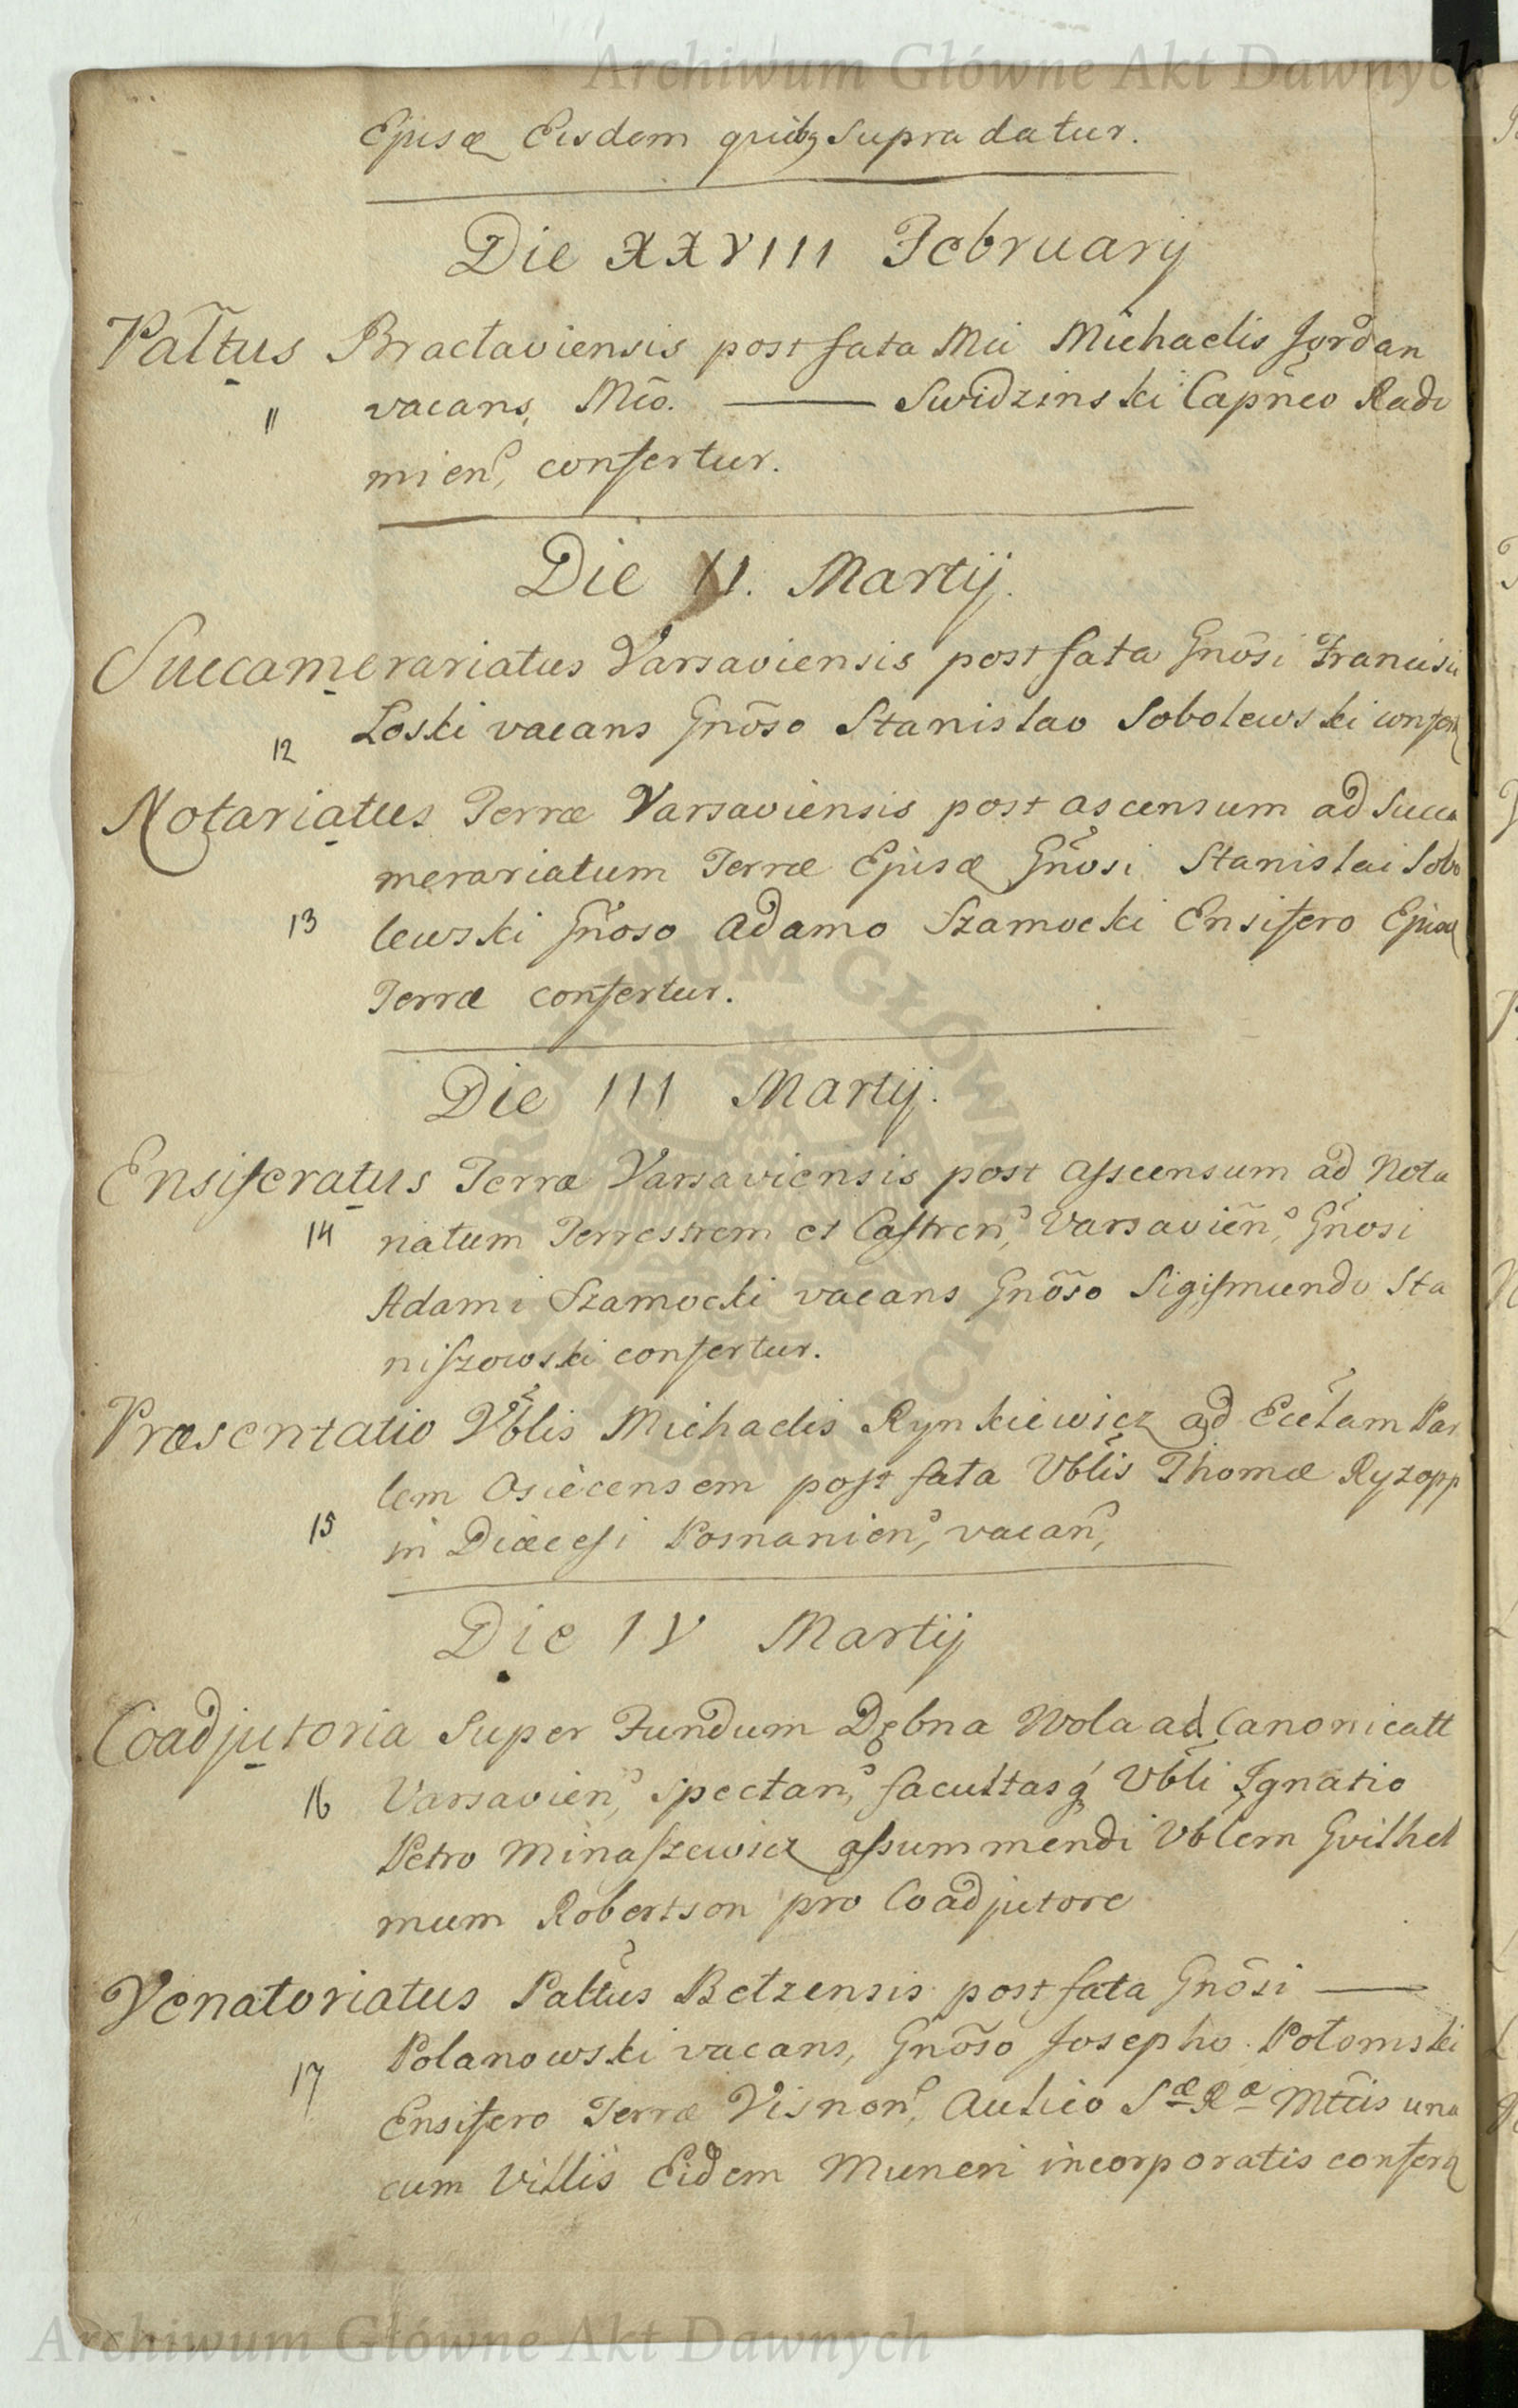 Archiwum Główne Akt Dawnych
Ejusq Eisdem quibq supra datur.
Die XXVIII February
Pałtus Bracłaviensis post fata Mci Michaelis Jordan
11 vacans, Mco. — Swidzinski Capneo Rado
mien, confertur.
Die II. Martij.
Succamerariatus Varsaviensis post fata Gnosi Francisci
12 Łoski vacans Gnoso Stanislao Sobolewski confer
Notariatus Terræ Varsaviensis post ascensum ad Succa
merariatum Terræ Ejusq Gnosi Stanislai Sobo
13 lewski Gnoso Adamo Szamocki Ensifero Ejusq
Terræ confertur.
Die III Martij.
Ensiferatus Terræ Varsaviensis post assensum ad Nota
14 riatum Terrestrem et Castren, Varsavien, Gnosi
Adami Szamocki vacans Gnoso Sigismundo Sta
niszowski confertur.
Præsentatio Vblis Michaelis Rynkiewicz ad Ecclam Par
lem Osiecensem post fata Vblis Thomæ Ryzopp
15 in Diæcesi Posnanien, vacan,
Die IV Martij
Coadjutoria super Fundum Dębna Wola ad Canonicatt
16 Varsavien, spectan, facultasq Vbli Ignatio
Petro Minaszewicz assummendi Vblem Gvilhel
mum Robertson pro Coadjutore
Venatoriatus Pałtus Bełzensis post fata Gnosi —
Polanowski vacans, Gnoso Josepho Połomski
17 Ensifero Terræ Visnen, Aulico Sæ Ræ Mttis una
cum Villis Eidem Muneri incorporatis conferq
ARCHIWUM GŁÓWNE AKT DAWNYCH
Archiwum Główne Akt Dawnych